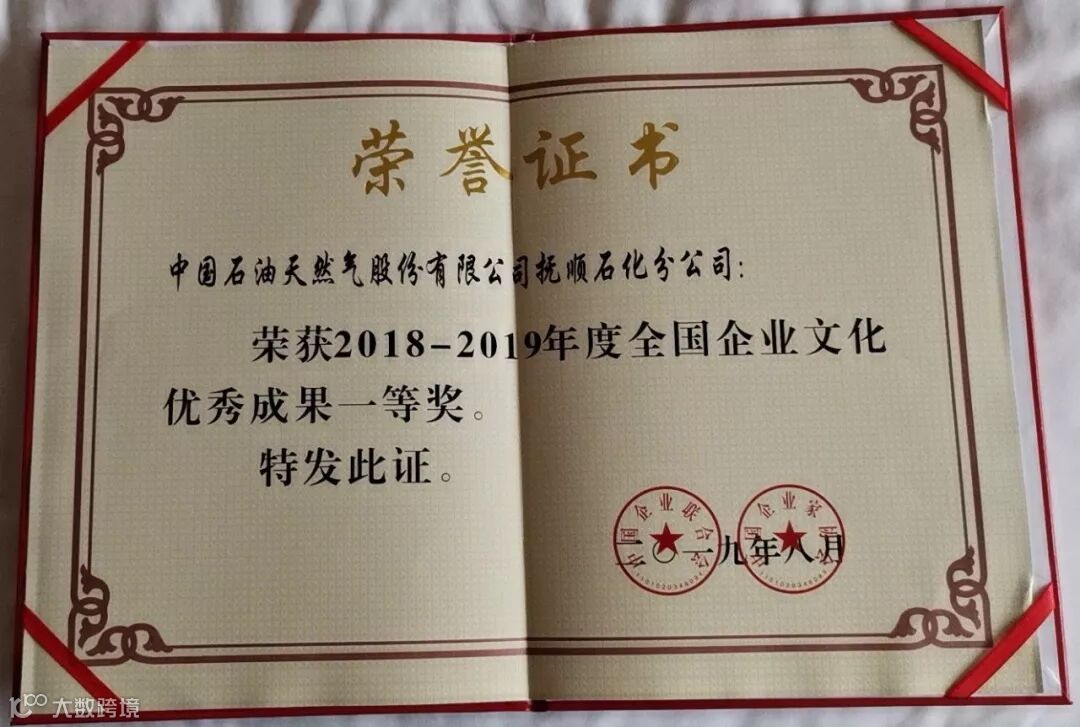 荣誉证书
中国石油天然气股份有限公司抚顺石化分公司：
荣获2018-2019年度全国企业文化
优秀成果一等奖。
特发此证。
中国企业联合会
中国企业家协会
二〇一九年八月
大数跨境